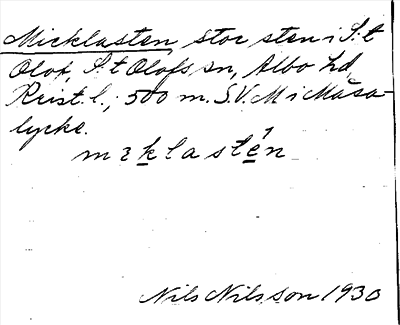 Micklasten, stor sten i S:t
Olof, S:t Olofs sn, Albo hd,
Krist. l.; 500 m. S.V. Mickasa-
lycke.
mɛklastén
Nils Nilsson 1930